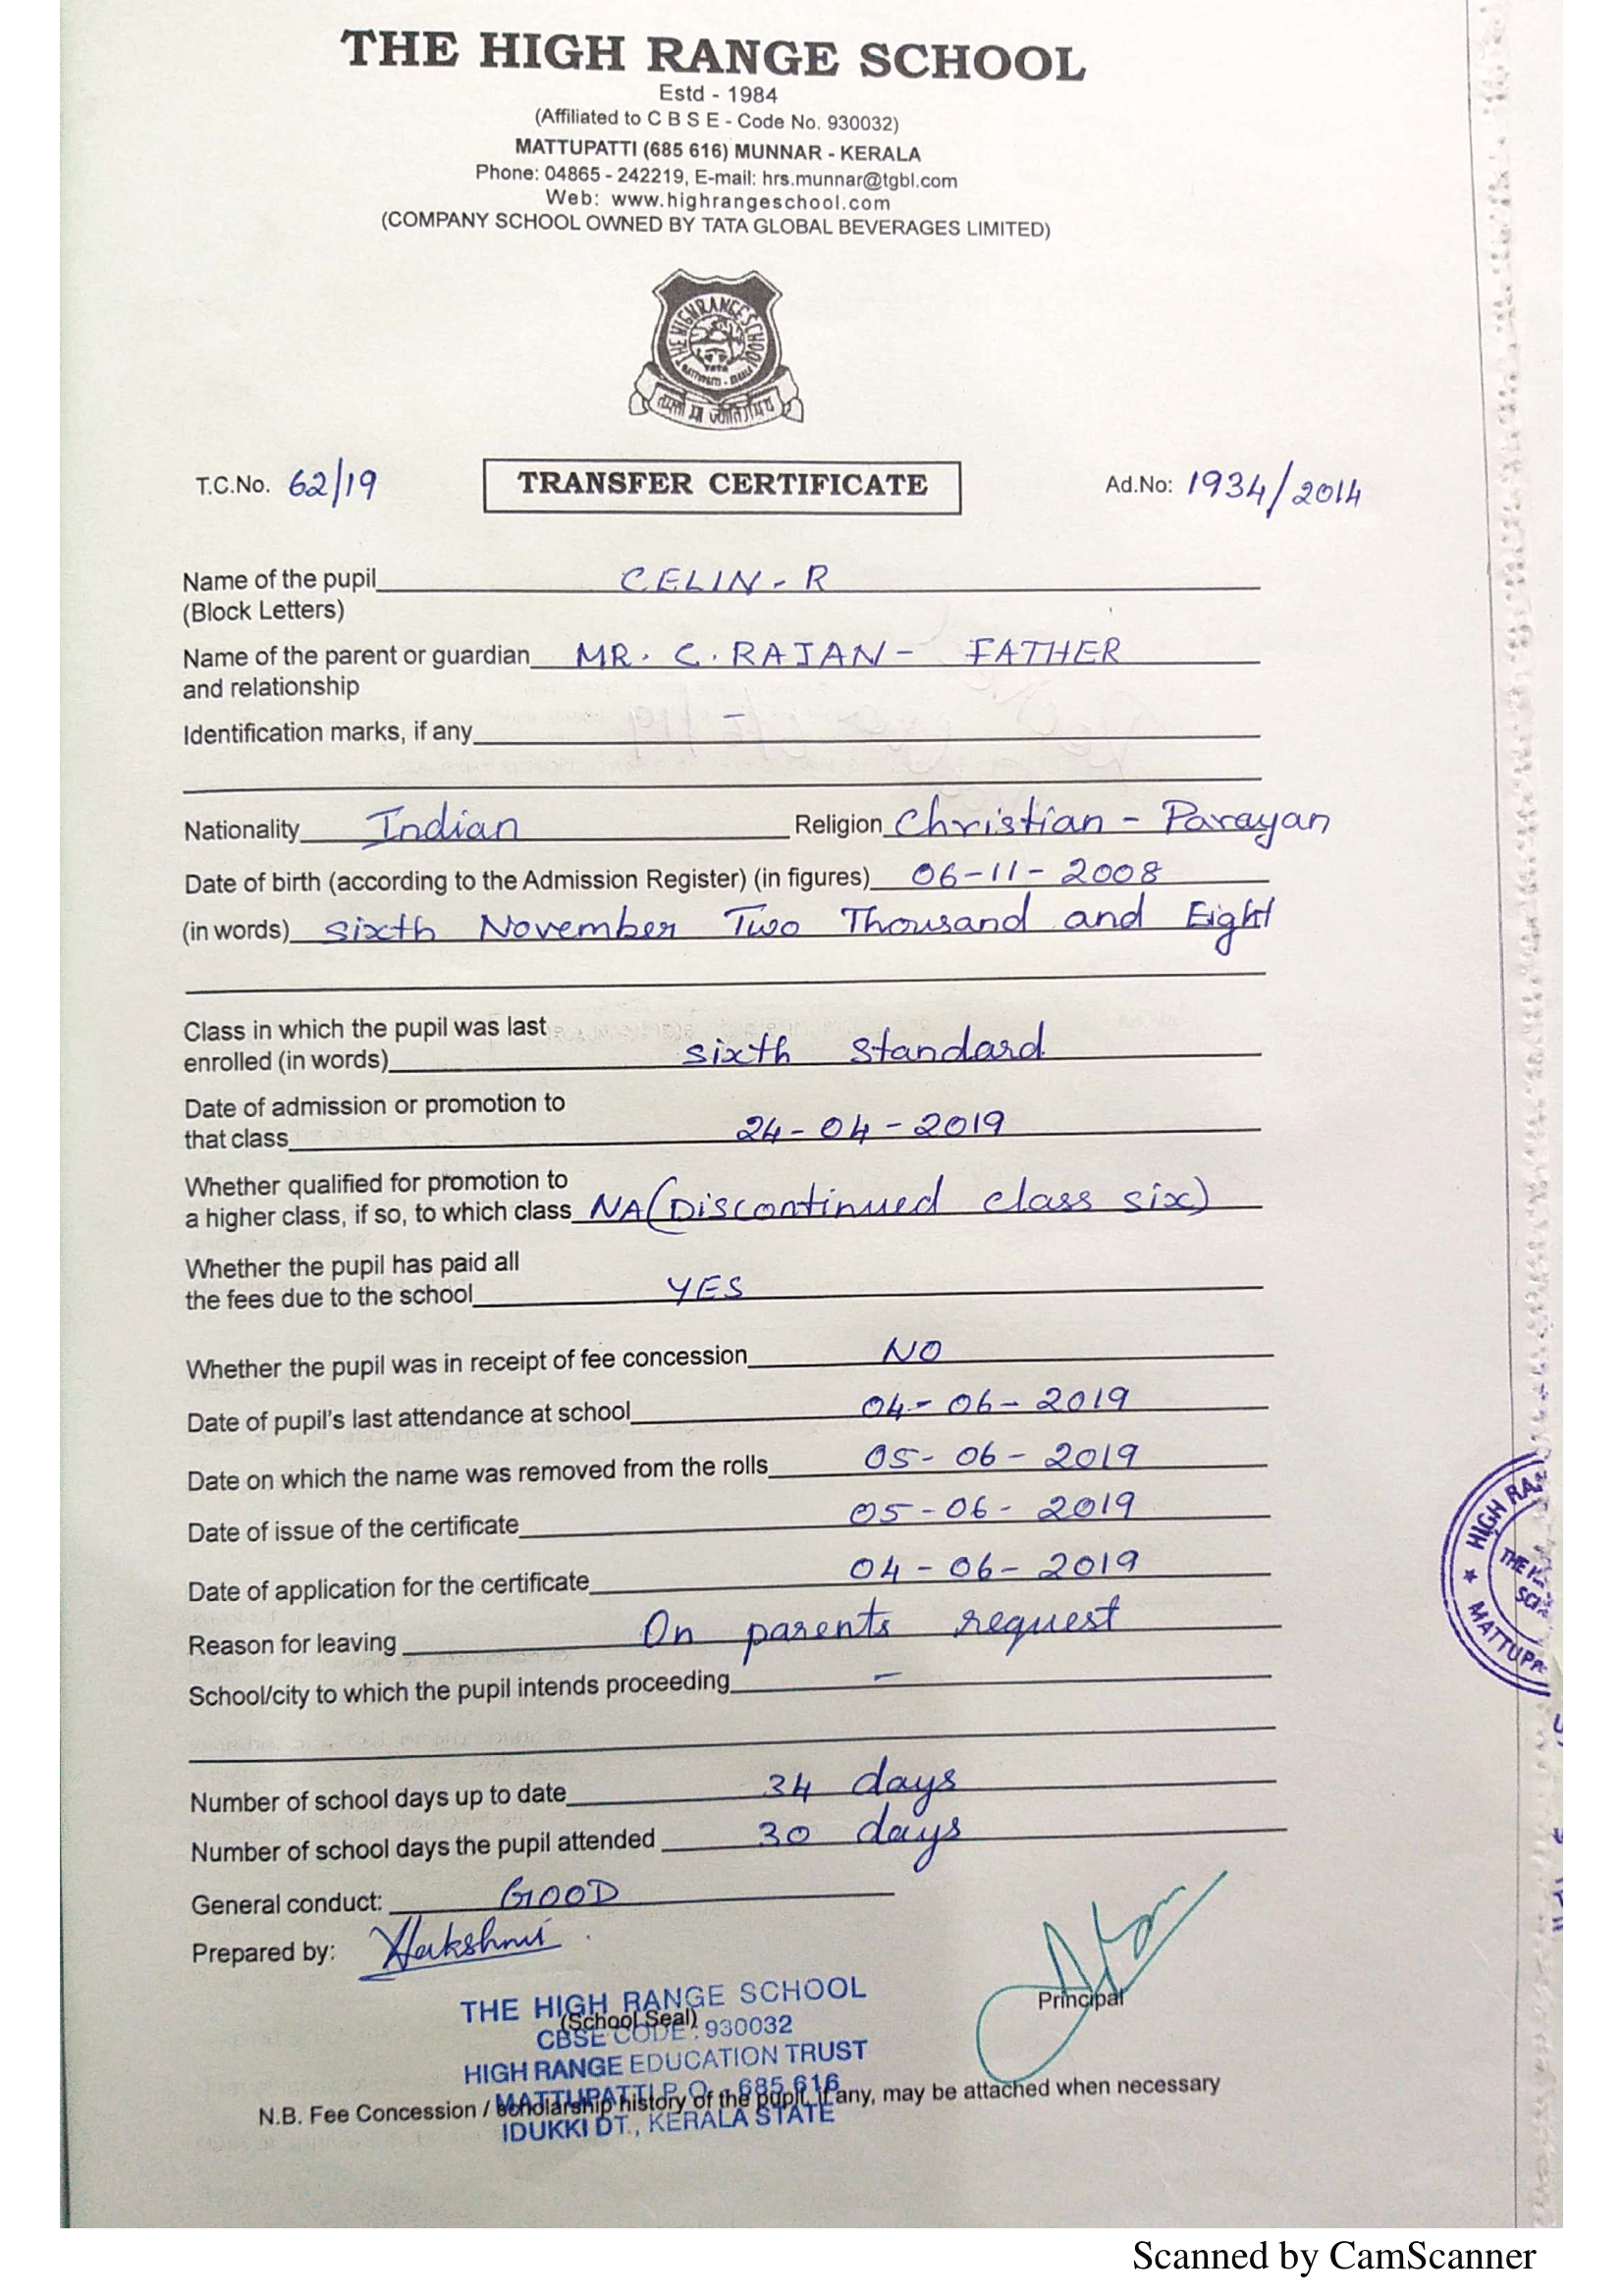 THE HIGH RANGE SCHOOL
Estd - 1984
(Affiliated to C B S E - Code No. 930032)
MATTUPATTI (685 616) MUNNAR - KERALA
Phone: 04865 - 242219, E-mail: hrs.munnar@tgbl.com
Web: www.highrangeschool.com
(COMPANY SCHOOL OWNED BY TATA GLOBAL BEVERAGES LIMITED)
THE HIGH RANGE SCHOOL
T.C.No. 62/19 TRANSFER CERTIFICATE Ad.No: 1934/2014
Name of the pupil CELIN - R
(Block Letters)
Name of the parent or guardian MR. C. RAJAN - FATHER
and relationship
Identification marks, if any –
Nationality Indian Religion Christian - Parayan
Date of birth (according to the Admission Register) (in figures) 06-11-2008
(in words) sixth November Two Thousand and Eight
Class in which the pupil was last
enrolled (in words) sixth standard
Date of admission or promotion to
that class 24-04-2019
Whether qualified for promotion to
a higher class, if so, to which class NA (Discontinued class six)
Whether the pupil has paid all
the fees due to the school YES
Whether the pupil was in receipt of fee concession NO
Date of pupil's last attendance at school 04-06-2019
Date on which the name was removed from the rolls 05-06-2019
Date of issue of the certificate 05-06-2019
Date of application for the certificate 04-06-2019
Reason for leaving On parents request
School/city to which the pupil intends proceeding –
HIGH RA
MATTUPA
Number of school days up to date 34 days
Number of school days the pupil attended 30 days
General conduct: GOOD
Prepared by:
Principal
THE HIGH RANGE SCHOOL
(School Seal)
CBSE CODE : 930032
HIGH RANGE EDUCATION TRUST
MATTUPATTI P.O. - 685 616
N.B. Fee Concession / scholarship history of the pupil, if any, may be attached when necessary
IDUKKI DT., KERALA STATE
Scanned by CamScanner